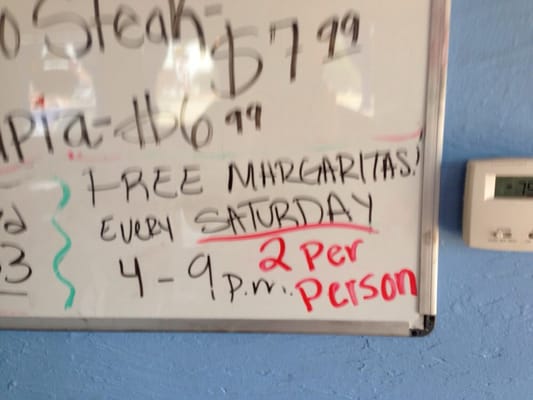 Steak- $7.99
- $6.99
FREE MARGARITAS!
EVERY SATURDAY
4-9 p.m. 2 Per
Person
3